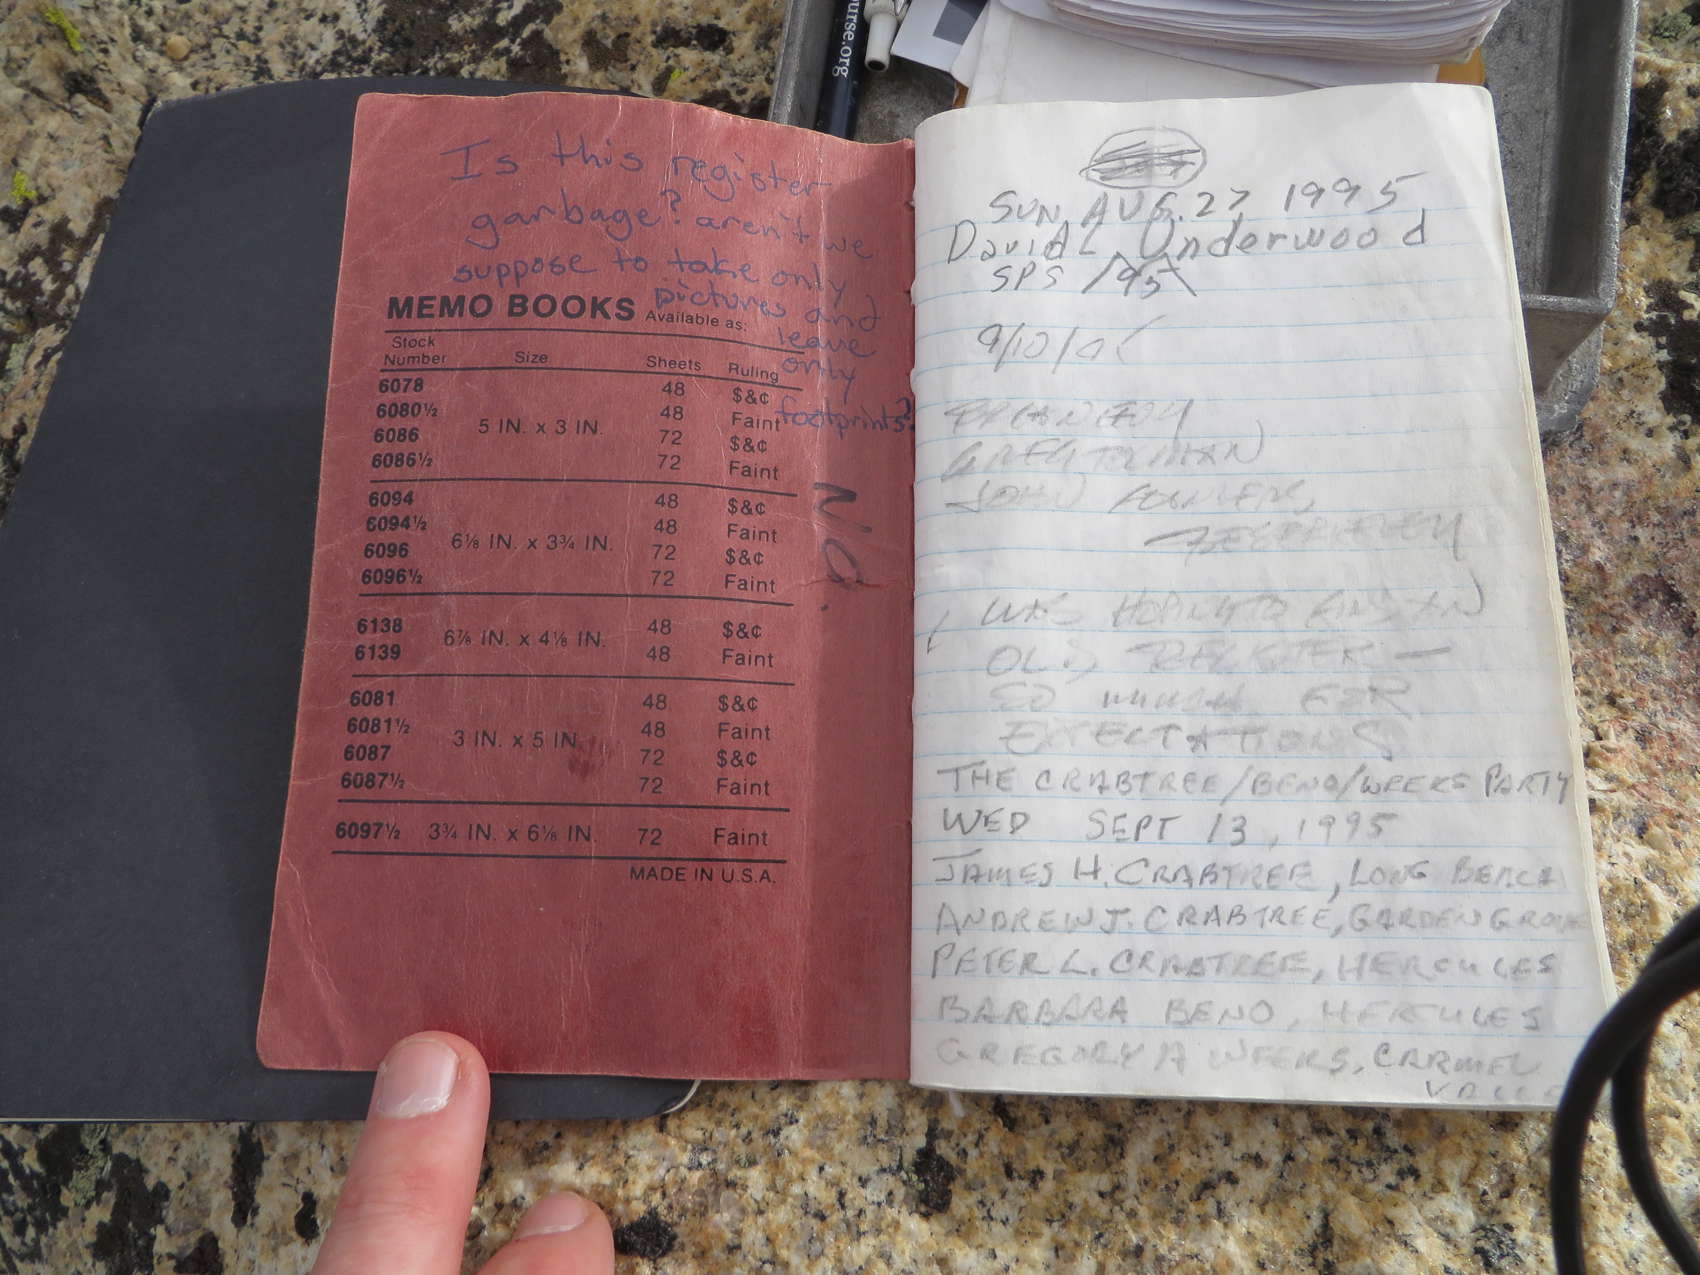 urse.org
Is this register
garbage? aren't we
suppose to take only
pictures and
leave
only
footprints?
No.
MEMO BOOKS Available as:
Stock Number Size Sheets Ruling
6078 48 $&¢
6080½ 48 Faint
5 IN. x 3 IN.
6086 72 $&¢
6086½ 72 Faint
6094 48 $&¢
6094½ 48 Faint
6⅛ IN. x 3¾ IN.
6096 72 $&¢
6096½ 72 Faint
6138 48 $&¢
6⅞ IN. x 4⅛ IN.
6139 48 Faint
6081 48 $&¢
6081½ 48 Faint
3 IN. x 5 IN.
6087 72 $&¢
6087½ 72 Faint
6097½ 3¾ IN. x 6⅛ IN. 72 Faint
MADE IN U.S.A.
SUN, AUG. 27 1995
David L Underwood
SPS /95\
9/10/
JOHN
WAS HOPING TO FIND AN
OLD REGISTER —
SO MUCH FOR
EXPECTATIONS
THE CRABTREE/BENO/WEEKS PARTY
WED SEPT 13, 1995
JAMES H. CRABTREE, LONG BEACH
ANDREW J. CRABTREE, GARDEN GROVE
PETER L. CRABTREE, HERCULES
BARBARA BENO, HERCULES
GREGORY A WEEKS, CARMEL
VALLE